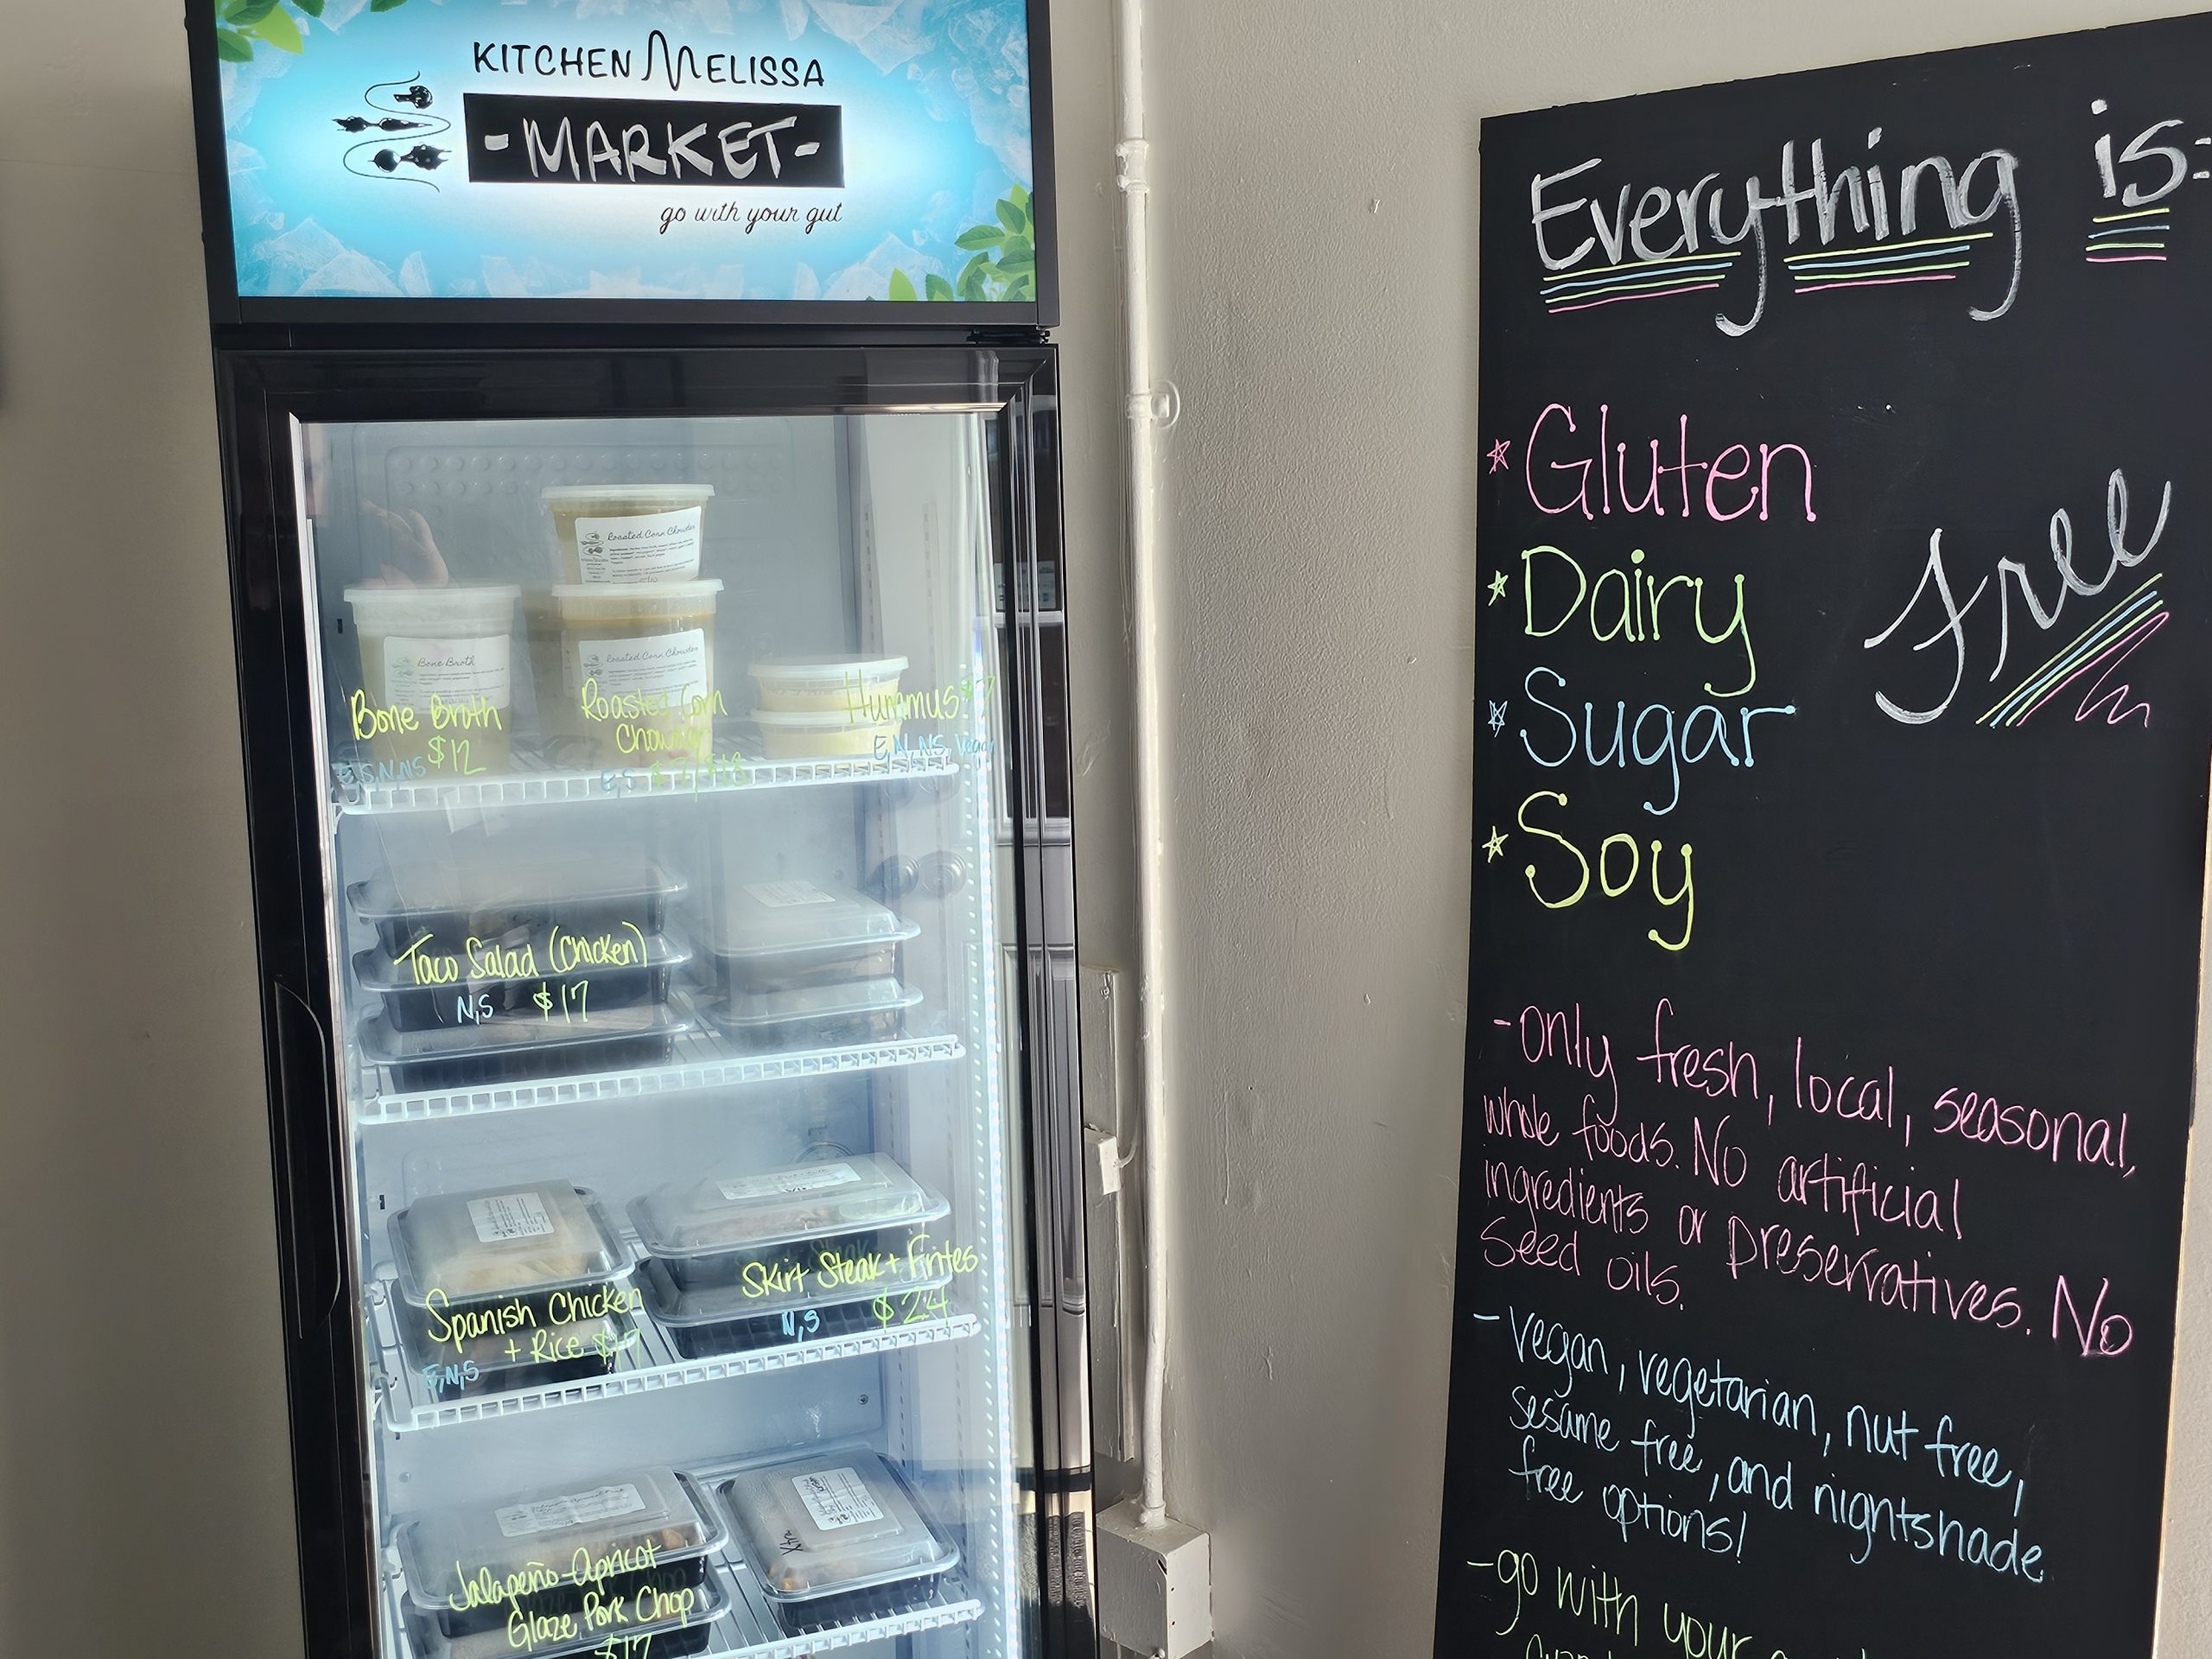 KITCHEN MELISSA
-MARKET-
go with your gut
Roasted Corn Chowder
Bone Broth
Roasted Corn Chowder
Bone Broth
$12
E,S,N,NS
Roasted Corn
Chowder
E,S $7/$18
Hummus $7
E,N,NS, Vegan
Taco Salad (Chicken)
N,S $17
Spanish Chicken
+ Rice $17
E,N,S
Skirt Steak + Frites
N,S $24
Jalapeño-Apricot
Glaze Pork Chop
$17
Everything is:
Gluten
Dairy
Sugar
Soy
Free
-only fresh, local, seasonal,
whole foods. No artificial
ingredients or preservatives. No
seed oils.
-Vegan, vegetarian, nut free,
sesame free, and nightshade
free options!
-go with your